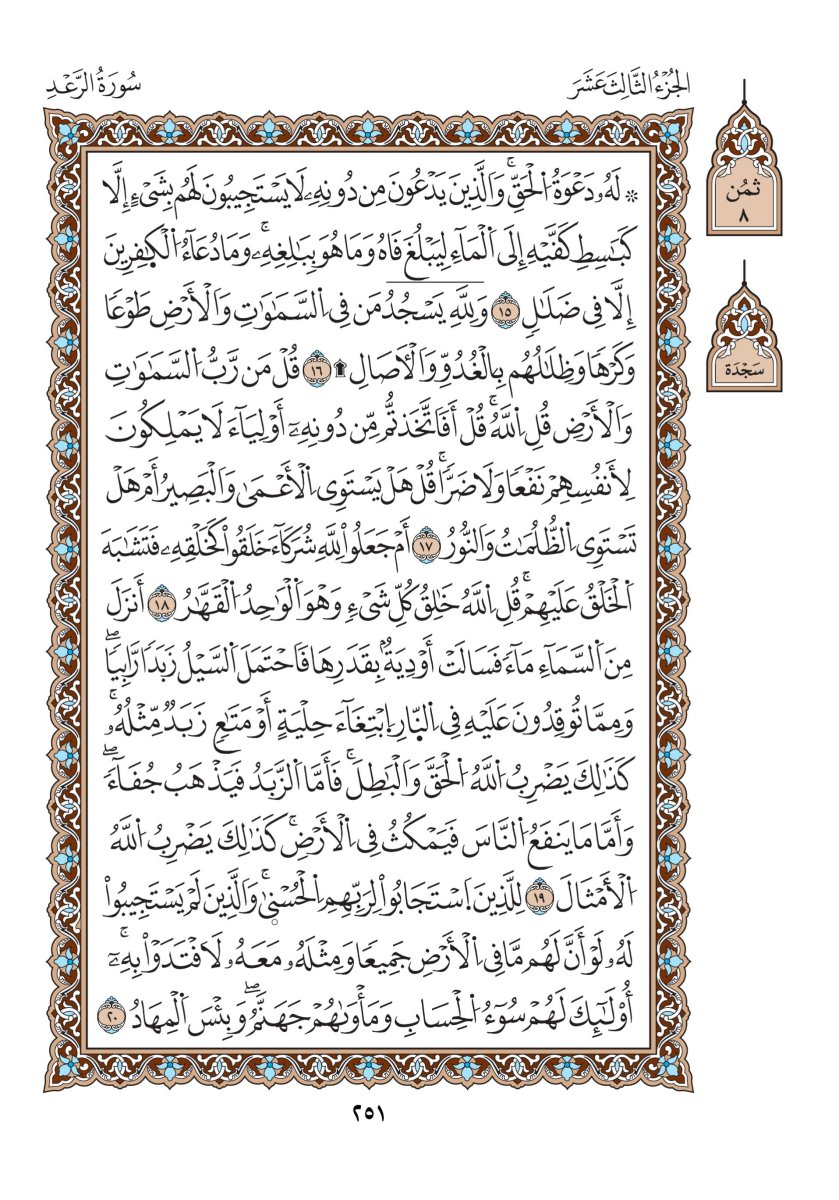 الجُزْءُ الثَّالِثَ عَشَرَ
سُورَةُ الرَّعْدِ
ثمُن
٨
سَجْدَة
۞ لَهُۥ دَعْوَةُ اُ۬لْحَقِّۖ وَالَّذِينَ يَدْعُونَ مِن دُونِهِۦ لَا يَسْتَجِيبُونَ لَهُم بِشَےْءٍ إِلَّا
كَبَٰسِطِ كَفَّيْهِ إِلَى اَ۬لْمَآءِ لِيَبْلُغَ فَاهُ وَمَا هُوَ بِبَٰلِغِهِۦۖ وَمَا دُعَآءُ اُ۬لْكٰ۪فِرِينَ
إِلَّا فِي ضَلَٰلٖ ١٥ وَلِلهِ يَسْجُدُ مَن فِي اِ۬لسَّمَٰوَٰتِ وَالْأَرْضِ طَوْعاٗ
وَكَرْهاٗ وَظِلَٰلُهُم بِالْغُدُوِّ وَالْأٓصَالِ ۩ ١٦ قُلْ مَن رَّبُّ اُ۬لسَّمَٰوَٰتِ
وَالْأَرْضِ قُلِ اِ۬للَّهُۖ قُلْ أَفَاتَّخَذتُّم مِّن دُونِهِۦٓ أَوْلِيَآءَ لَا يَمْلِكُونَ
لِأَنفُسِهِمْ نَفْعاٗ وَلَا ضَرّاٗۖ قُلْ هَلْ يَسْتَوِي اِ۬لْأَعْمَىٰ وَالْبَصِيرُ أَمْ هَلْ
تَسْتَوِي اِ۬لظُّلُمَٰتُ وَالنُّورُ ١٧ أَمْ جَعَلُواْ لِلهِ شُرَكَآءَ خَلَقُواْ كَخَلْقِهِۦ فَتَشَٰبَهَ
اَ۬لْخَلْقُ عَلَيْهِمْۖ قُلِ اِ۬للَّهُ خَٰلِقُ كُلِّ شَےْءٖ وَهُوَ اَ۬لْوَٰحِدُ اُ۬لْقَهَّٰرُ ١٨ أَنزَلَ
مِنَ اَ۬لسَّمَآءِ مَآءٗ فَسَالَتْ أَوْدِيَةُۢ بِقَدَرِهَا فَاحْتَمَلَ اَ۬لسَّيْلُ زَبَداٗ رَّابِياٗۖ
وَمِمَّا تُوقِدُونَ عَلَيْهِ فِي اِ۬لنّ۪ارِ اِ۪بْتِغَآءَ حِلْيَةٍ أَوْ مَتَٰعٖ زَبَدٞ مِّثْلُهُۥۖ
كَذَٰلِكَ يَضْرِبُ اُ۬للَّهُ اُ۬لْحَقَّ وَالْبَٰطِلَۖ فَأَمَّا اَ۬لزَّبَدُ فَيَذْهَبُ جُفَآءٗۖ
وَأَمَّا مَا يَنفَعُ اُ۬لنَّاسَ فَيَمْكُثُ فِي اِ۬لْأَرْضِۖ كَذَٰلِكَ يَضْرِبُ اُ۬للَّهُ
اُ۬لْأَمْثَالَ ١٩ لِلَّذِينَ اَ۪سْتَجَابُواْ لِرَبِّهِمِ اِ۬لْحُسْن۪يٰۖ وَالَّذِينَ لَمْ يَسْتَجِيبُواْ
لَهُۥ لَوْ أَنَّ لَهُم مَّا فِي اِ۬لْأَرْضِ جَمِيعاٗ وَمِثْلَهُۥ مَعَهُۥ لَافْتَدَوْاْ بِهِۦٓۖ
أُوْلَٰٓئِكَ لَهُمْ سُوٓءُ اُ۬لْحِسَابِ وَمَأْوَىٰهُمْ جَهَنَّمُۖ وَبِئْسَ اَ۬لْمِهَادُ ٢٠
٢٥١